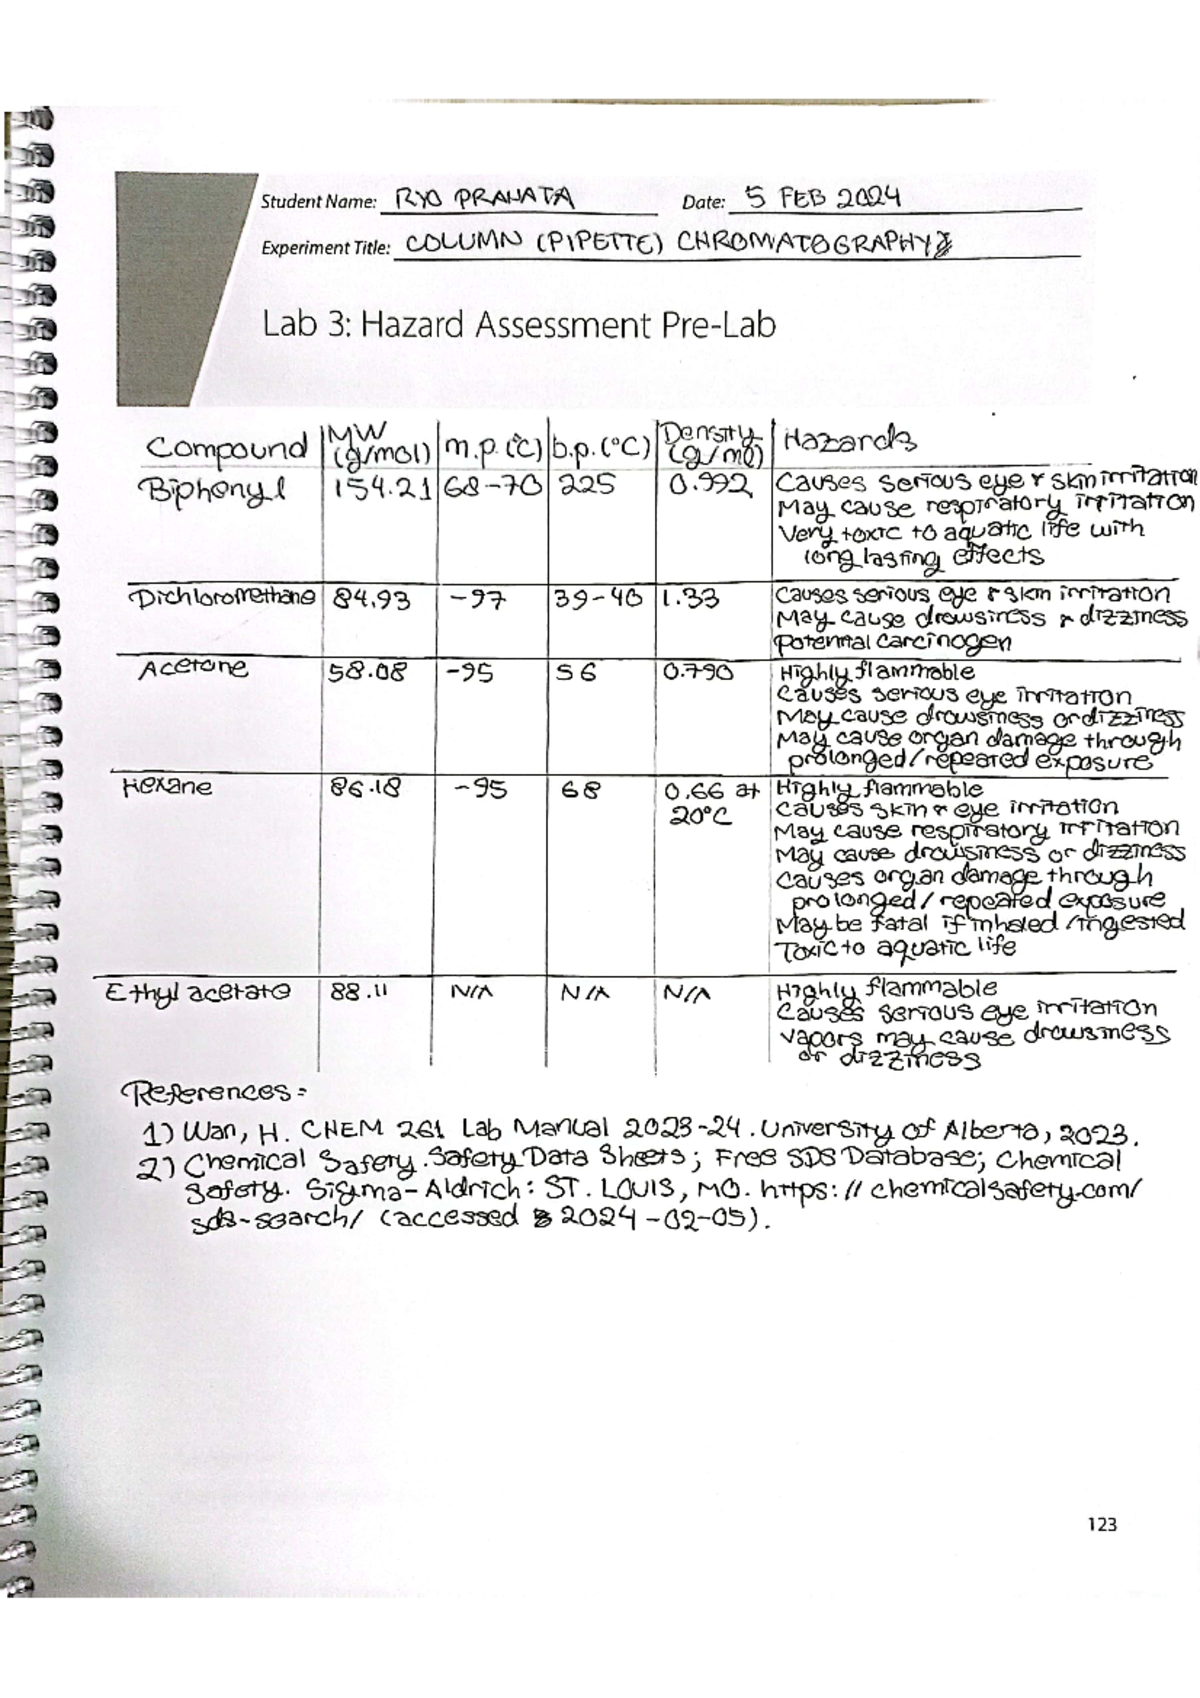 Student Name: RYO PRANATA Date: 5 FEB 2024
Experiment Title: COLUMN (PIPETTE) CHROMATOGRAPHY
Lab 3: Hazard Assessment Pre-Lab
Compound MW (g/mol) m.p. (°C) b.p. (°C) Density (g/ml) Hazards
Biphenyl 154.21 68-70 225 0.992 Causes serious eye & skin irritation
May cause respiratory irritation
Very toxic to aquatic life with
long lasting effects
Dichloromethane 84.93 -97 39-40 1.33 Causes serious eye & skin irritation
May cause drowsiness & dizziness
Potential carcinogen
Acetone 58.08 -95 56 0.790 Highly flammable
Causes serious eye irritation
May cause drowsiness or dizziness
May cause organ damage through
prolonged/repeated exposure
Hexane 86.18 -95 68 0.66 at 20°C Highly flammable
Causes skin & eye irritation
May cause respiratory irritation
May cause drowsiness or dizziness
Causes organ damage through
prolonged/repeated exposure
May be fatal if inhaled/ingested
Toxic to aquatic life
Ethyl acetate 88.11 N/A N/A N/A Highly flammable
Causes serious eye irritation
Vapors may cause drowsiness
or dizziness
References:
1) Wan, H. CHEM 261 Lab Manual 2023-24. University of Alberta, 2023.
2) Chemical Safety. Safety Data Sheets; Free SDS Database; Chemical
Safety. Sigma-Aldrich: ST. LOUIS, MO. https://chemicalsafety.com/
sds-search/ (accessed 2024-02-05).
123